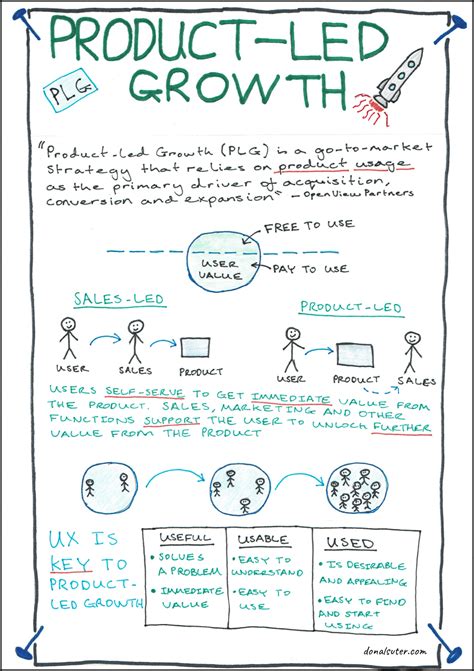 PRODUCT-LED
GROWTH
PLG
"Product-led Growth (PLG) is a go-to-market
strategy that relies on product usage
as the primary driver of acquisition,
conversion and expansion" - OpenView Partners
FREE TO USE
USER
VALUE
PAY TO USE
SALES-LED
USER
SALES
PRODUCT
PRODUCT-LED
USER
PRODUCT
SALES
USERS SELF-SERVE TO GET IMMEDIATE VALUE FROM
THE PRODUCT. SALES, MARKETING AND OTHER
FUNCTIONS SUPPORT THE USER TO UNLOCK FURTHER
VALUE FROM THE PRODUCT
UX IS
KEY TO
PRODUCT-
LED GROWTH
USEFUL
• SOLVES
A PROBLEM
• IMMEDIATE
VALUE
USABLE
• EASY TO
UNDERSTAND
• EASY TO
USE
USED
• IS DESIRABLE
AND APPEALING
• EASY TO FIND
AND START
USING
donalsuter.com